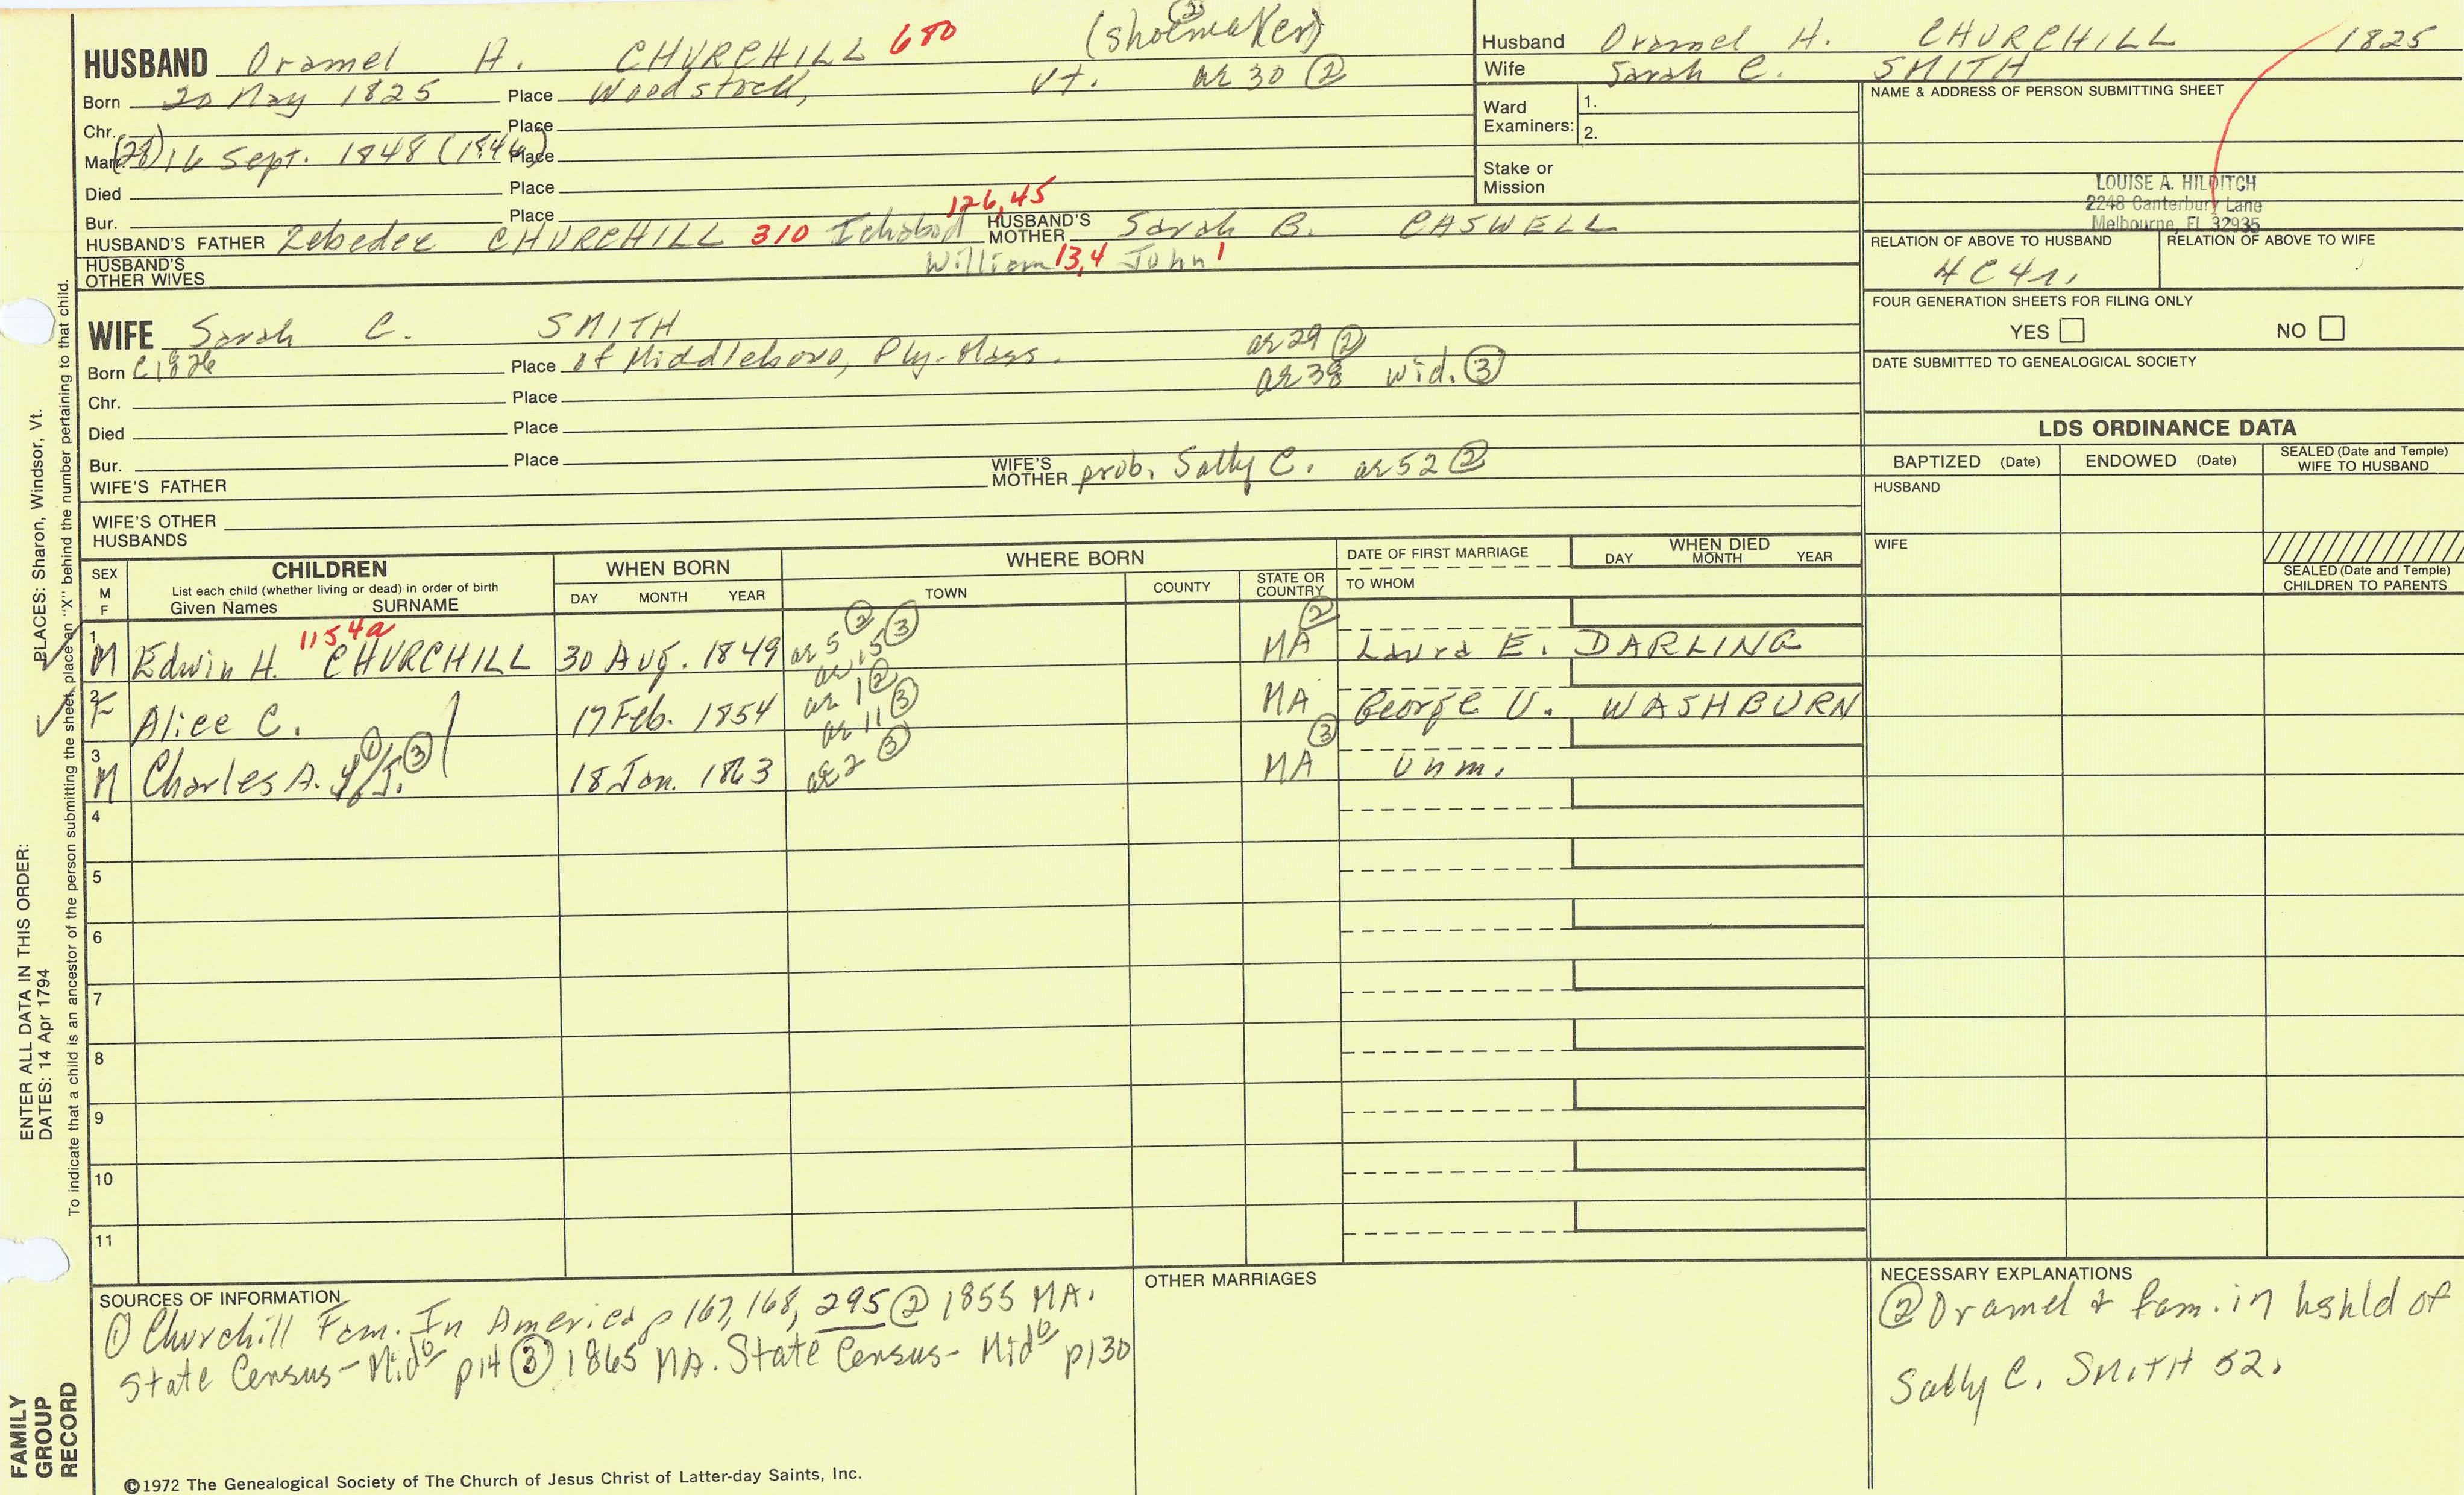 HUSBAND Oramel H. CHURCHILL 680 (shoemaker) ②
Born 20 May 1825 Place Woodstock, Vt. ae 30 ②
Chr. Place
Marr. (28) 16 Sept. 1848 (1846) Place
Died Place
Bur. Place
126,45
HUSBAND'S FATHER Zebedee CHURCHILL 310 Ichabod HUSBAND'S MOTHER Sarah B. CASWELL
HUSBAND'S OTHER WIVES William 13,4 John 1
WIFE Sarah C. SMITH
Born C1826 Place of Middleboro, Ply. Mass. ae 29 ②
ae 38 wid. ③
Chr. Place
Died Place
Bur. Place
WIFE'S FATHER WIFE'S MOTHER prob. Sally C. ae 52 ②
WIFE'S OTHER HUSBANDS
Husband Oramel H. CHURCHILL 1825
Wife Sarah C. SMITH
Ward Examiners: 1.
2.
Stake or Mission
NAME & ADDRESS OF PERSON SUBMITTING SHEET
LOUISE A. HILDITCH
2248 Canterbury Lane
Melbourne, FL 32935
RELATION OF ABOVE TO HUSBAND RELATION OF ABOVE TO WIFE
4C4r.
FOUR GENERATION SHEETS FOR FILING ONLY
YES NO
DATE SUBMITTED TO GENEALOGICAL SOCIETY
LDS ORDINANCE DATA
BAPTIZED (Date) ENDOWED (Date) SEALED (Date and Temple) WIFE TO HUSBAND
HUSBAND
WIFE
SEALED (Date and Temple) CHILDREN TO PARENTS
SEX M F CHILDREN List each child (whether living or dead) in order of birth Given Names SURNAME
WHEN BORN DAY MONTH YEAR
WHERE BORN TOWN COUNTY STATE OR COUNTRY
DATE OF FIRST MARRIAGE TO WHOM
WHEN DIED DAY MONTH YEAR
1 M Edwin H. 1154a CHURCHILL 30 Aug. 1849 ae 5 ② ae 15 ③ MA ② Laura E. DARLING
2 F Alice C. 17 Feb. 1854 ae 1 ② ae 11 ③ MA George U. WASHBURN
3 M Charles A. ① /J. ③ 18 Jan. 1863 ae 2 ③ MA ③ Unm.
4
5
6
7
8
9
10
11
SOURCES OF INFORMATION
① Churchill Fam. In America p 167, 168, 295 ② 1855 MA.
State Census - Midb p14 ③ 1865 MA. State Census - Midb p130
OTHER MARRIAGES
NECESSARY EXPLANATIONS
② Oramel & fam. in hshld of
Sally C. SMITH 52.
©1972 The Genealogical Society of The Church of Jesus Christ of Latter-day Saints, Inc.
PLACES: Sharon, Windsor, Vt.
To indicate that a child is an ancestor of the person submitting the sheet, place an "X" behind the number pertaining to that child.
ENTER ALL DATA IN THIS ORDER:
DATES: 14 Apr 1794
FAMILY GROUP RECORD